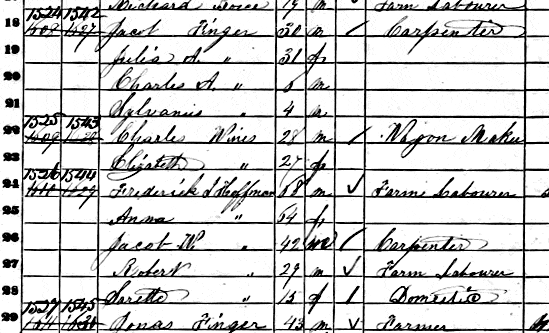 Michael 19 m Farm Labourer
18 1524 1542 Jacob Finger 30 m / Carpenter
19 Julia A. " 31 f
20 Charles A. " 6 m
21 Sylvanis " 4 m
22 1525 1543 Charles Wiris 28 m / Wagon Maker
23 Elizabeth " 27 f
24 1526 1544 Frederick S Hoffman 68 m ✓ Farm Labourer
25 Anna " 64 f
26 Jacob W. " 42 m / Carpenter
27 Robert " 29 m ✓ Farm Labourer
28 Sarette " 15 f / Domestic
29 1527 1545 Jonas Finger 43 m ✓ Farmer